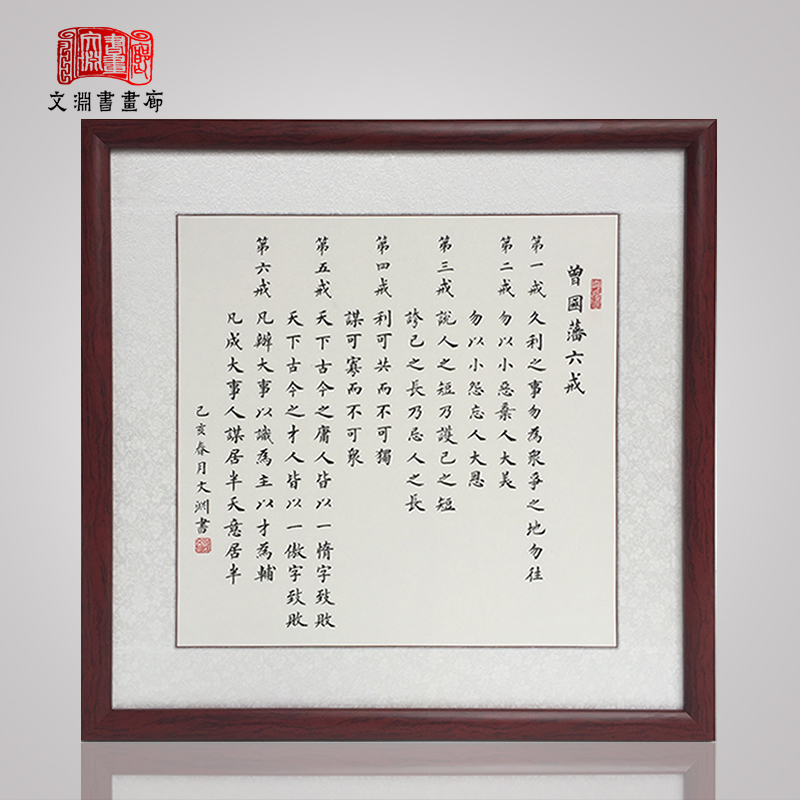 文淵書畫廊
曾國藩六戒
第一戒 久利之事勿為衆爭之地勿往
第二戒 勿以小惡棄人大美
勿以小怨忘人大恩
第三戒 說人之短乃護己之短
誇己之長乃忌人之長
第四戒 利可共而不可獨
謀可寡而不可衆
第五戒 天下古今之庸人皆以一惰字致敗
天下古今之才人皆以一傲字致敗
第六戒 凡辦大事以識為主以才為輔
凡成大事人謀居半天意居半
己亥春月文淵書